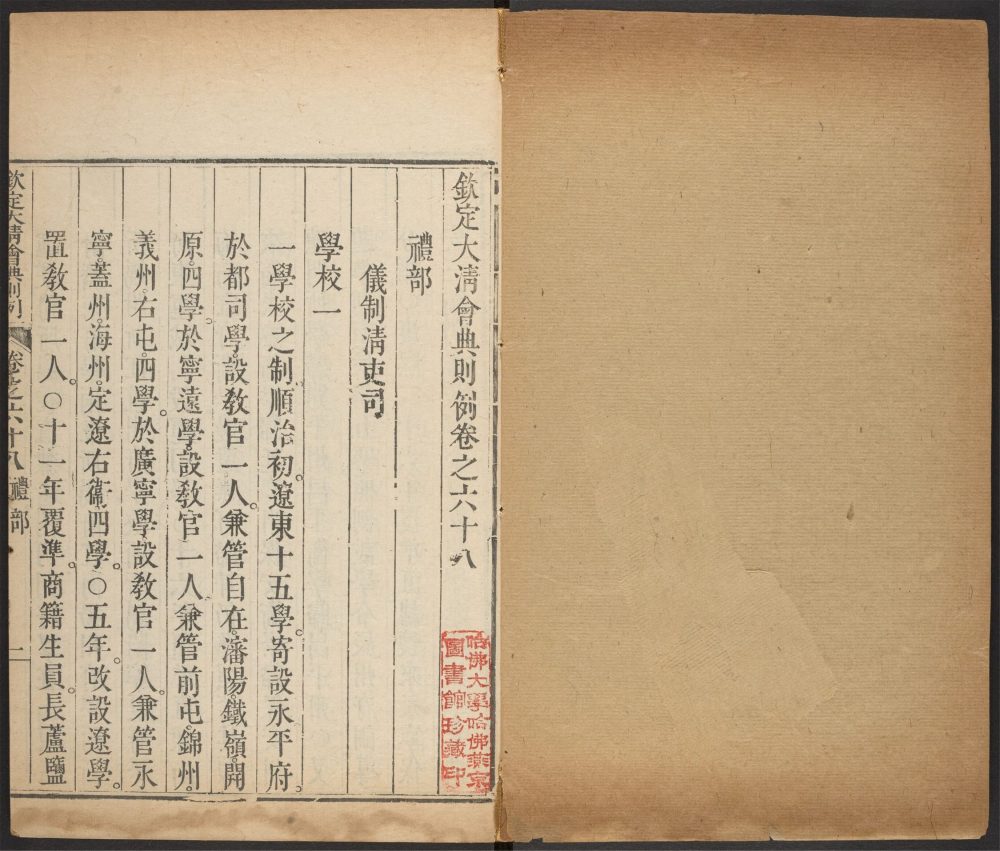 欽定大清會典則例卷之六十八
哈佛大學哈佛燕京
圖書館珍藏印
禮部
儀制清吏司
學校一
一學校之制順治初。遼東十五學。寄設永平府。
於都司學。設教官一人。兼管自在。瀋陽。鐵嶺。開
原。四學。於寧遠學。設教官一人兼管前屯。錦州。
義州。右屯。四學。於廣寧學。設教官一人。兼管永
寧。蓋州。海州。定遼右衞。四學。○五年。改設遼學。
置教官一人。○十一年覆準。商籍生員。長蘆鹽
欽定大清會典則例 卷之六十八 禮部 一